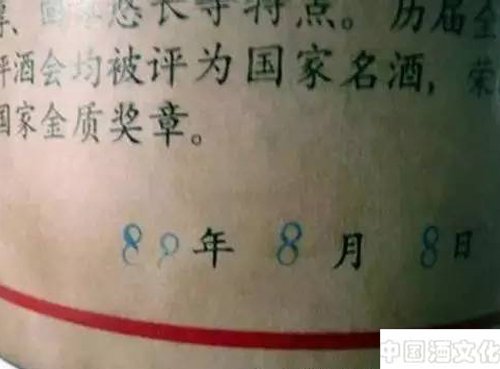 回味悠长等特点。历届全
评酒会均被评为国家名酒，荣
国家金质奖章。
88年8月8日
中国酒文化